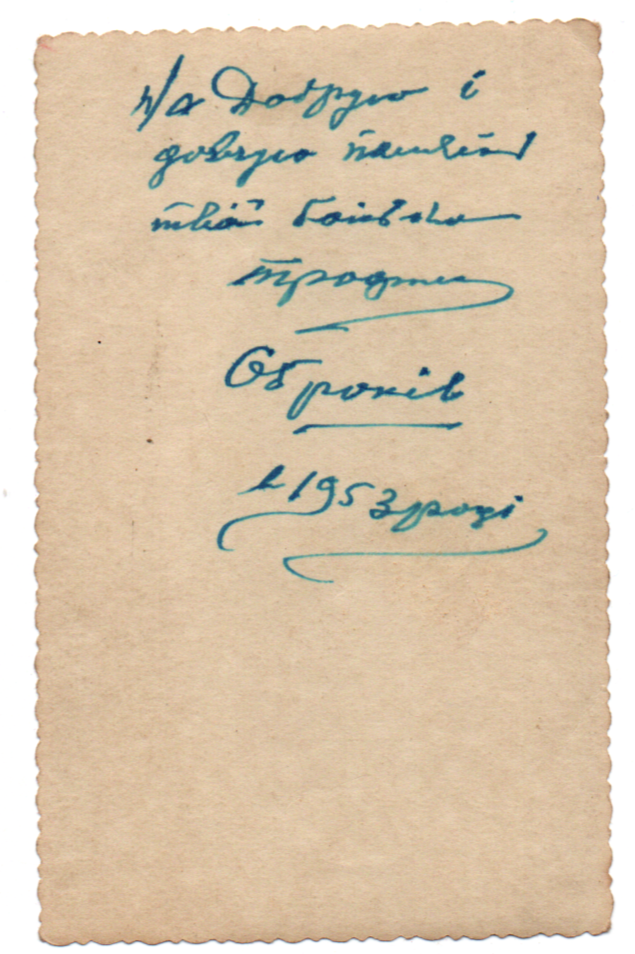 На Добрую і
довгую память
твій батько
Трофим
65 років
в 1953 році